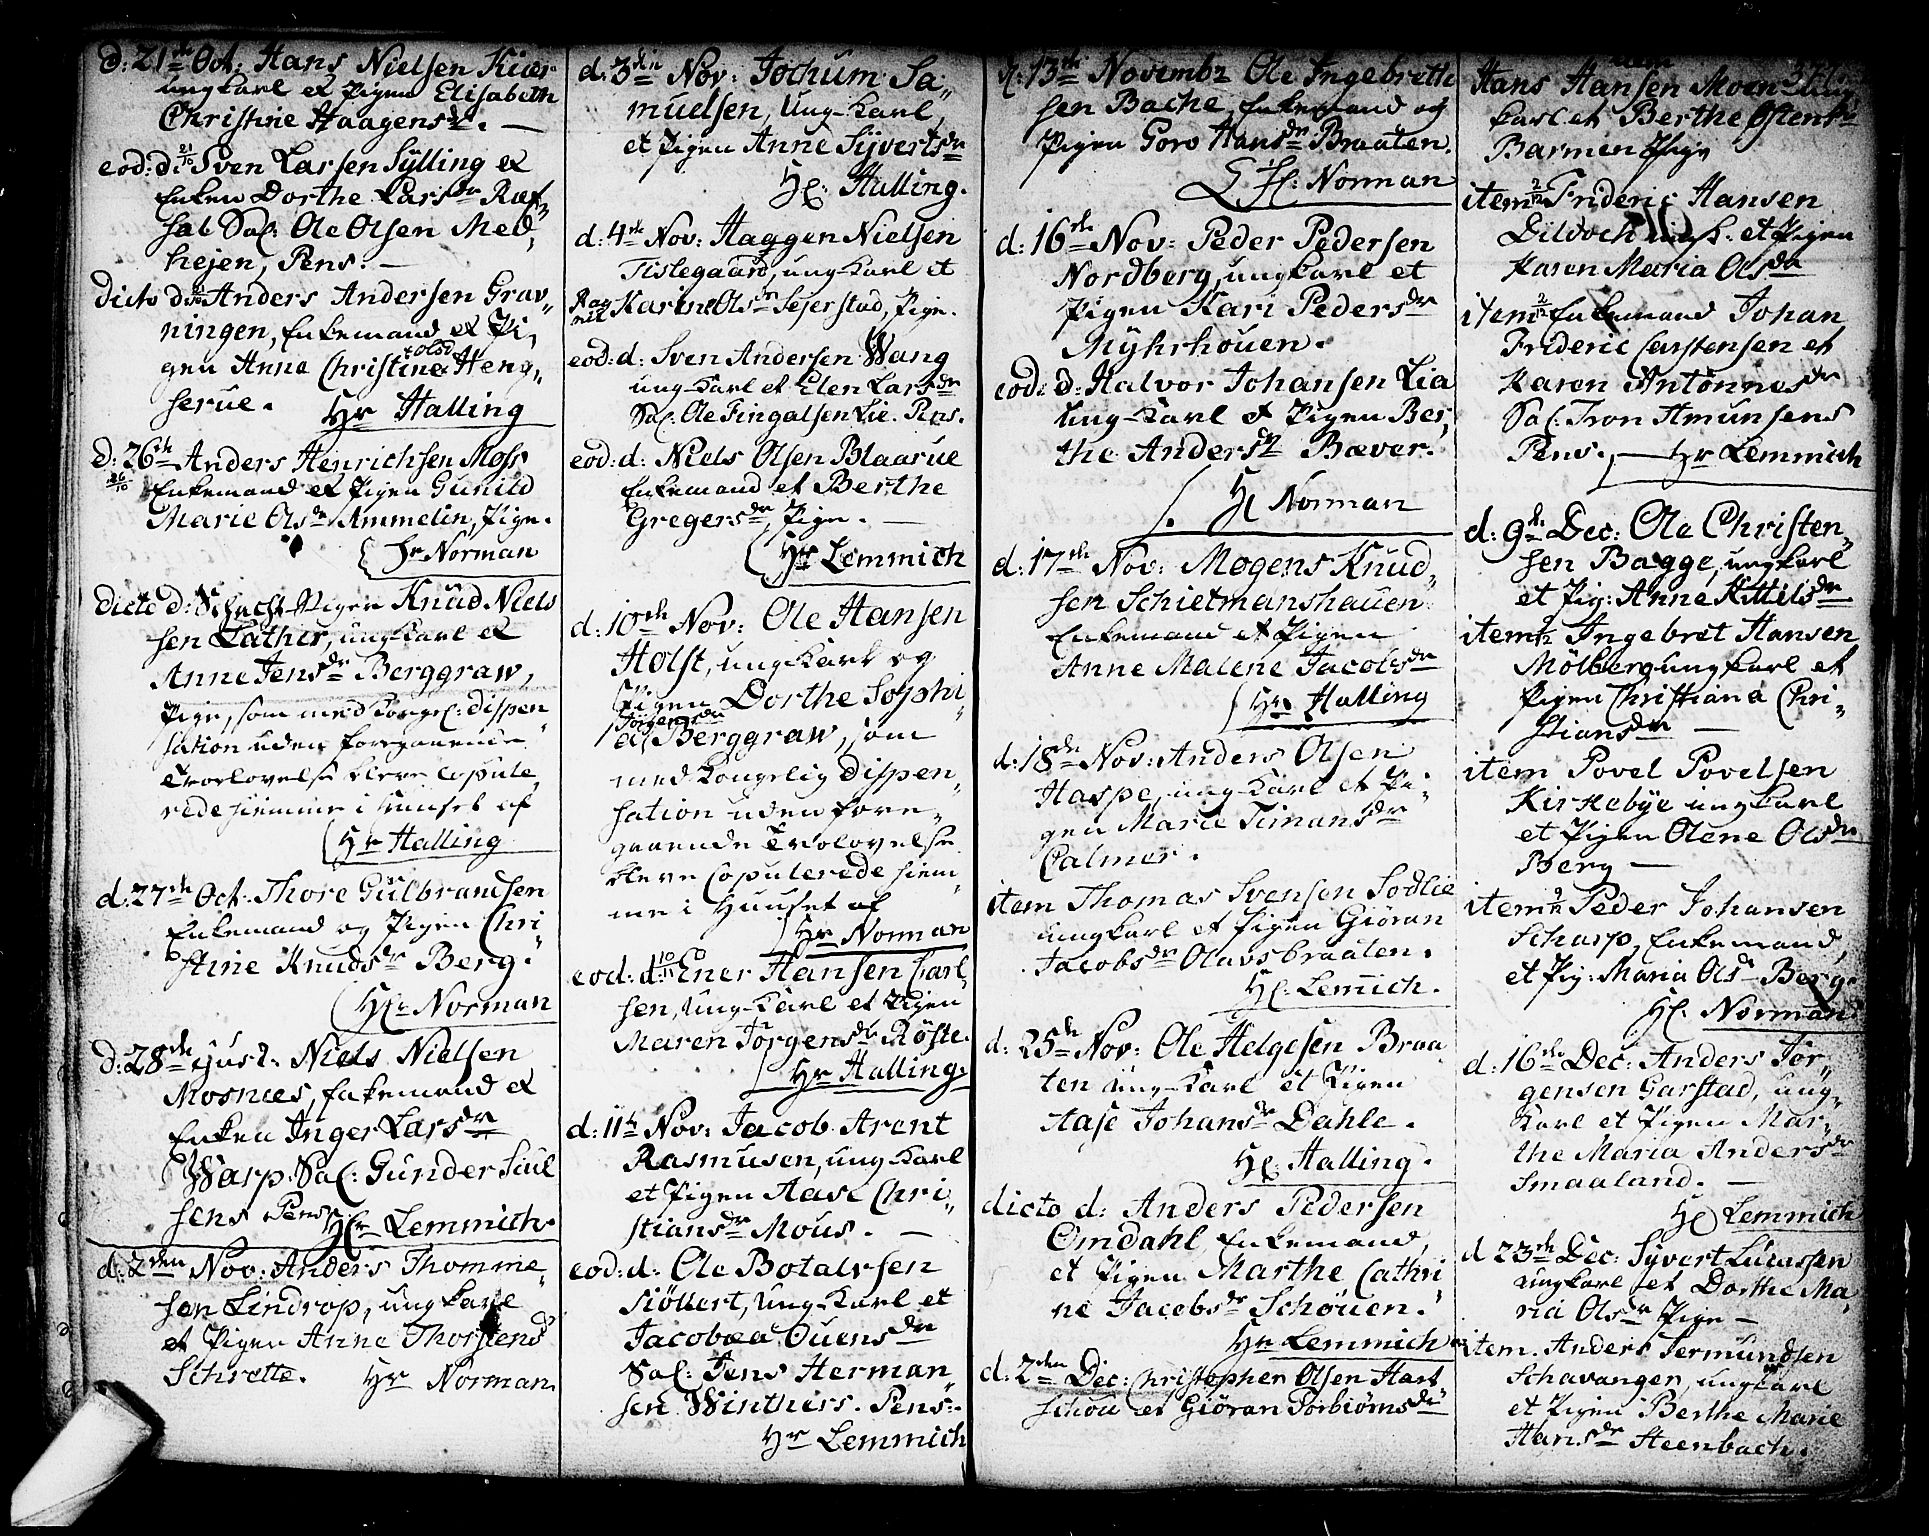 d: 21de Oct: Hans Nielsen Kiær
ungkarl et Pigen Elisabeth
Christine Haagensdr. —
eod: d: 21/10 Sven Larsen Sylling et
Enken Dorthe Larsdr Ref,,
sal Sal: Ole Olsen Med,
hejen, Pens. —
dicto d: Anders Andersen Grav,,
ningen, Enkemand et Pi,
gen Anne Christine Olsd Heng,,
serue. Hr Halling
d: 26de Anders Henrichsen Moss
26/10 Enkemand et Pigen Gunild
Marie Olsdr Ammelin, Pige.
Hr Norman
dicto d: Knud Niels
sen Lather, ungkarl et
Anne Jensdr Berggraw,
Pige, som med Kongel: Dispen
sation uden foregaaende
Trolovelse bleve Copule,
rede hiemme i Huuset af
Hr Halling
d: 27de Oct: Thore Gulbrandsen
Enkemand og Pigen Chri
stine Knudsdr Berg.
Hr Norman
d: 28de Niels Nielsen
Mosnæs, Enkemand et
Enken Inger Larsdr
Warp. Sal: Gunder Siul
sens Pens Hr Lemmich
d: 2den Nov: Anders Thomme,,
sen Lindrop, ungkarl
et Pigen Anne Thorstensd
Schrette. Hr Norman.
d: 3die Nov: Jochum Sa,,
muelsen, Ung-Karl,
et Pigen Anne Syvertsdr
H: Halling.
d: 4de Nov: Haagen Nielsen
Tislegaard, ung Karl et
Rag nil Karine Olsdr Sejerstad, Pige.
eod: d: Sven Andersen Wang
ung-Karl et Elen Larsdr
Sal: Ole Fingalsen Lie. Pens.
eod: d: Niels Olsen Blaarue
Enkemand et Berthe
Gregersdr, Pige. —
Hr Lemmich
d: 10de Nov: Ole Hansen
Holst, ung-Karl og
Pigen Dorthe Sophi
Jörgensdr
a Berggraw, som
med Kongelig Dispen,
sation uden fore,,
gaaende Trolovelse
bleve Copulerede hiem,
me i Huuset af
Hr Norman
eod: d: 10/11 Ener Hansen Carl,
sen, Ung-Karl et Pigen
Maren Jörgensdr Röste.
Hr Halling.
d: 11te Nov: Jacob Arent
Rasmusen, ung Karl
et Pigen Aase Chri,
stiansdr Mous. —
eod: d: Ole Botalvsen
Siöllert, Ung-Karl et
Jacobæa Ouensdr
Sal: Jens Herman,
sen Winthers. Pens:.
Hr Lemmich
d: 13de Novembr Ole Ingebreth
sen Bache, Enkemand og
Pigen Goro Hansdr Braaten.
H: Norman
d: 16de Nov: Peder Pedersen
Nordberg, ungkarl et
Pigen Kari Pedersdr
Myhrhouen.
eod: d: Halvor Johansen Lia
Ung-Karl et Pigen Ber,
the Andersdr Bæver.
H Norman
d: 17de Nov: Mogens Knud,,
sen Schietmanshauen
Enkemand et Pigen
Anne Malene Jacobsdr
Hr Halling
d: 18de Nov: Anders Olsen
Haspe, ung Karl et Pi,
gen Marie Timansdr
Calmer.
item Thomas Svensen Sodlie
ungkarl et Pigen Giöran
Jacobsdr Olavsbraaten.
H: Lemich.
d: 25de Nov: Ole Helgesen Braa
ten ung-Karl et Pigen
Aase Johansdr Dahle.
H: Halling.
dicto d: Anders Pedersen
Omdahl, Enkemand,
et Pigen Marthe Cathri
ne Jacobsdr Schöuen.
Hr Lemmich
d: 2den Dec: Christopher Olsen Hart
schou et Giöran Torbiörnsdr
377.
Hans Hansen Moen ung
karl et Berthe Ostensdr
Barmen Pige
item 2/12 Frideric Hansen
Dildoch ungk. et Pigen
Karen Maria Olsdr
item 2/12 Enkemand Johan
Frideric Carstensen et
Karen Antönnesdr
Sal: Iron Amunsens
Pens., — Hr Lemmich
d: 9de Dec: Ole Christen,,
sen Bagge, ungkarl
et Pig: Anne Kittilsdr
item Ingebret Hansen
Mölberg ungkarl et
Pigen Christiana Chri,
stiansdr —
item Povel Povelsen
Kirkebye ungkarl
et Pigen Olene Olsdr
Berg —
item Peder Johansen
Scharp, Enkemand,
et Pig: Maria Olsd Berg.
H: Norman
d: 16de Dec: Anders Jör,,
gensen Garstad, ung,
karl et Pigen Mar,,
the Maria Andersdr
Smaaland. —
H: Lemmich
d 23de Dec: Syvert Lucassen
ungkarl et Dorthe Ma,
ria Olsdr Pige —
item. Anders Sermundsen
Schavangen, ungkarl
et Pigen Berthe Marie
Hansdr Steenbach.